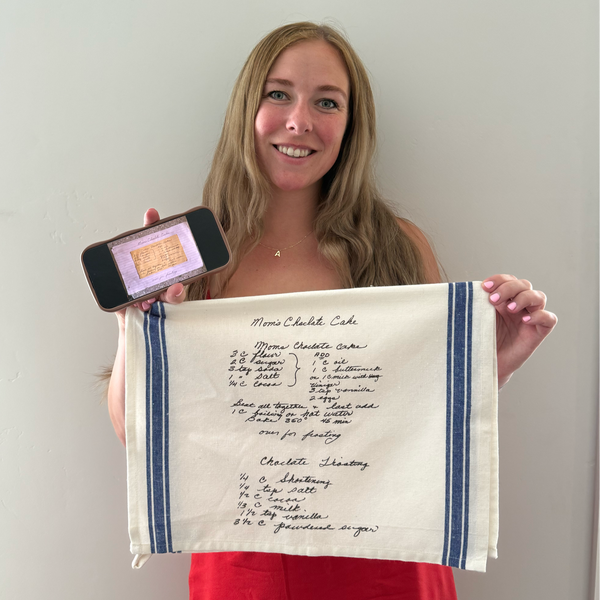 A
Mom's Choclate Cake
Moms Choclate Cake
3 C flour
2 C sugar
3 tsp soda
1 " salt
3/4 C cocoa
ADD
1 C oil
1 C buttermilk
or 1 C milk with
vinegar
3 tsp vanilla
2 eggs
Beat all together & last add
1 C boiling or hot water
Bake 350° 45 min
over for frosting
Choclate Frosting
1/4 C Shortening
1/4 tsp salt
1/2 C cocoa
1/3 C milk
1 1/2 tsp vanilla
3 1/2 C powdered sugar